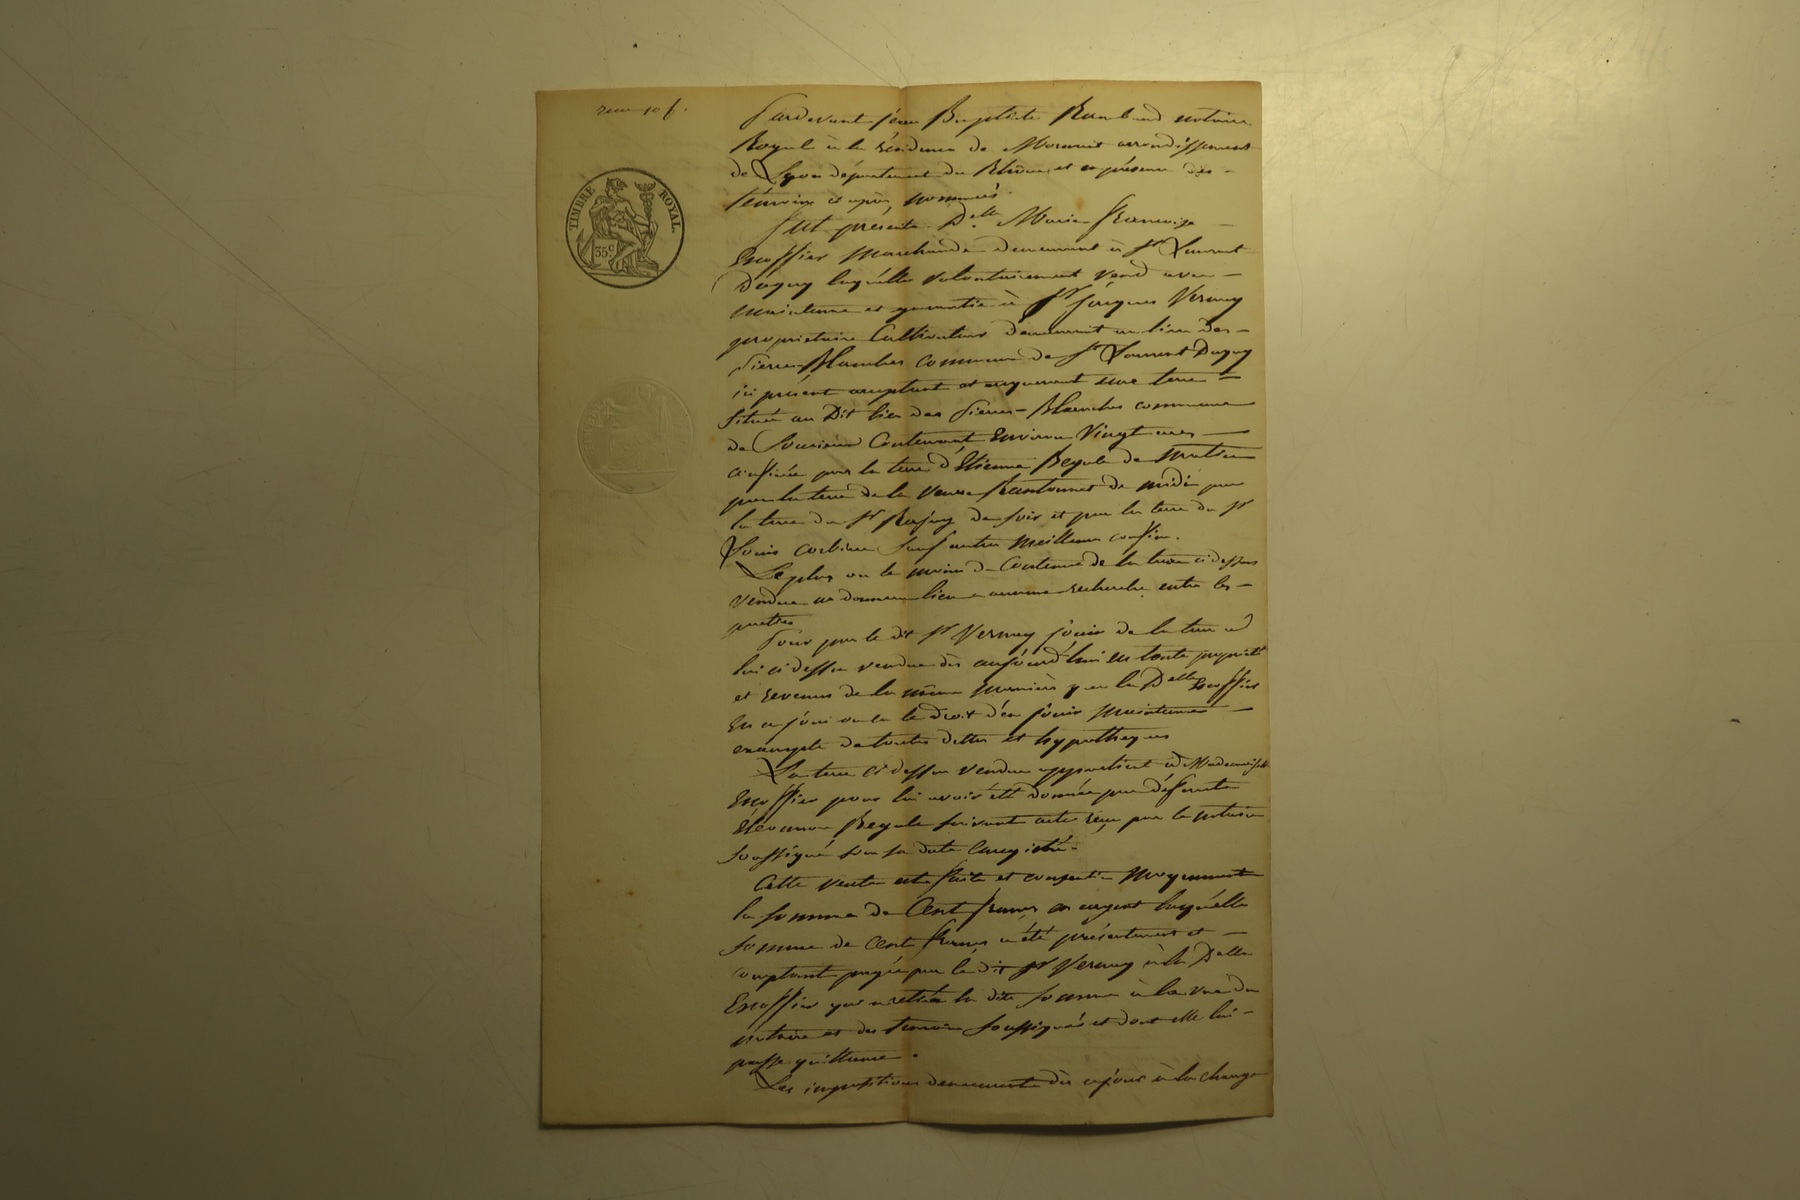 TIMBRE ROYAL.
35c.
Pardevant Jean Baptiste Rambaud notaire
Royale à la résidence de Mornant arrondissement
de Lyon département du Rhône et en présence des
témoins ci après nommés
fut présente Dlle Marie françoise
Escoffier Marchande demeurant à St Laurent
Dagny laquelle volontairement vend avec
maintenue et garantie à Sr Jacques Vernay
propriétaire Cultivateur demeurant au lieu des
Pierres Blanches commune de St Laurent Dagny
ici présent acceptant et acquerant une terre
située au Dit lieu des Pierres Blanches commune
de Soucieu Contenant Environ Vingt ares
confinée par la terre d'Etienne de matin
par la terre de la Veuve de midi par
la terre du Sr de soir et par la terre du Sr
Louis sauf autres meilleurs confins.
Le plus ou le moins de Contenue de la terre ci dessus
Vendue ne donnera lieu a aucune recherche entre les
parties
Pour par le dit Sr Vernay jouir de la terre a
lui ci dessus vendue dès aujourd'hui en toute propriété
et revenus de la même manière que la Dlle Escoffier
En a joui ou eu le droit d'en jouir maintenue
exempte de toutes dettes et hypotheques
La terre ci dessus vendue appartient à Mademoiselle
Escoffier pour lui avoir été donnée par défunte
Eléonore suivant acte reçu par le notaire
soussigné sous sa date Enregistré.
Cette vente est faite et consentie Moyennant
la somme de Cent francs en argent laquelle
somme de Cent francs a été présentement et
comptant payée par le dit Sr Vernay à la Dlle
Escoffier qui a retiré la dite somme à la vue du
notaire et des temoins soussignés et dont elle lui
passe quittance.
Les impositions demeurent dès ce jour à la charge